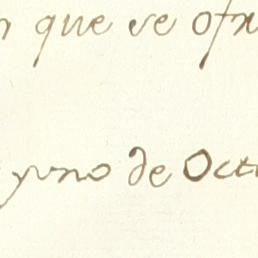 que se ofr
yuno de Oct